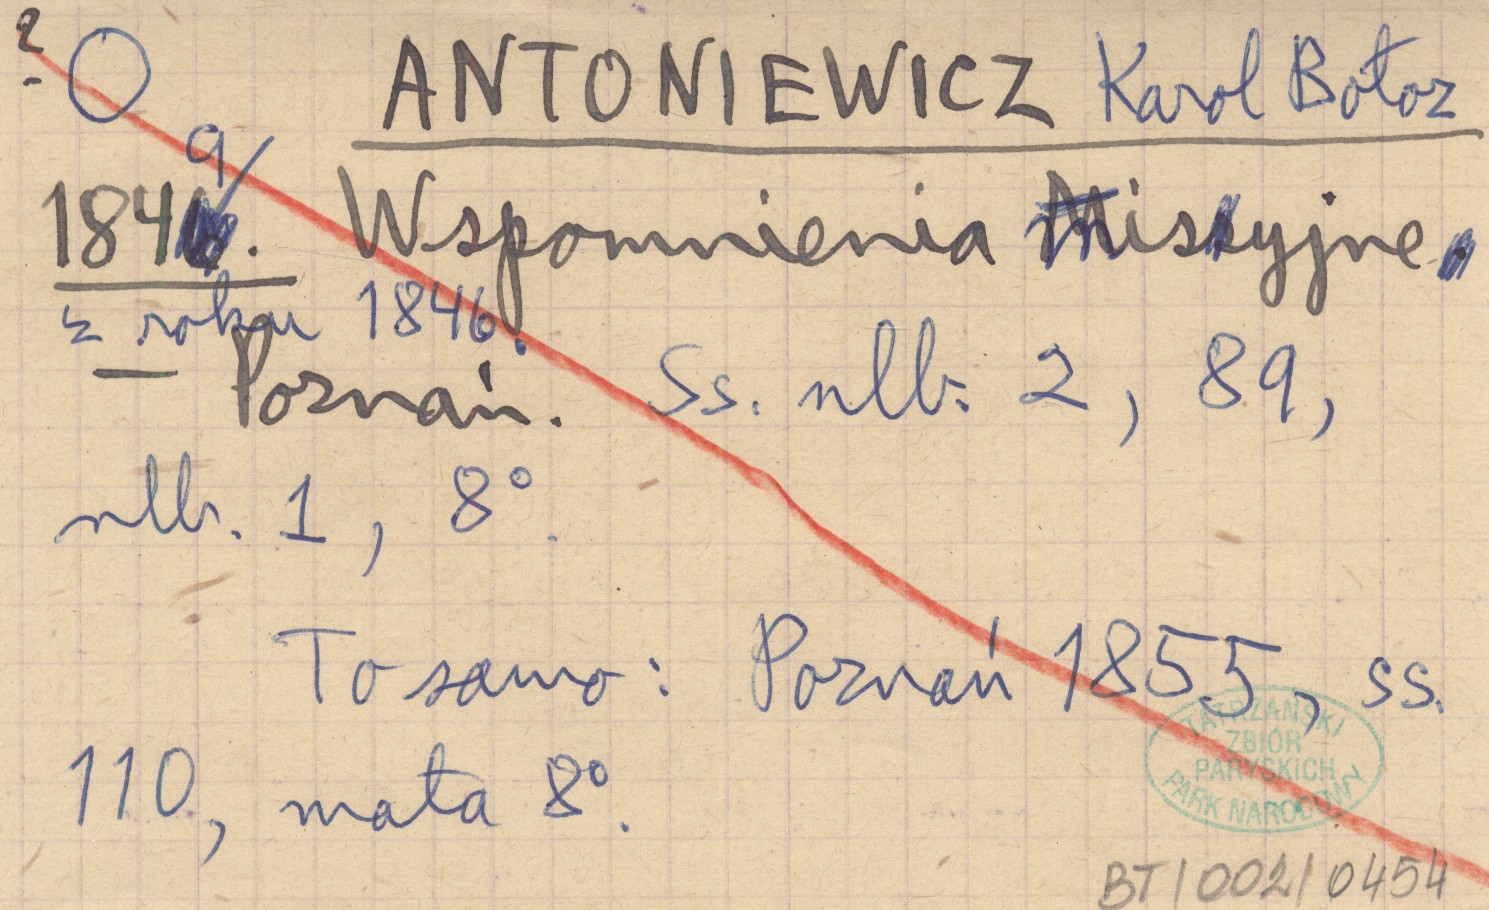 ?
ANTONIEWICZ Karol Bołoz
9/
184. Wspomnienia Misyjne
z roku 1846.
Poznań. Ss. nlb. 2, 89,
nlb. 1, 8°.
To samo: Poznań 1855, ss.
110, mała 8°.
TATRZAŃSKI
ZBIÓR
PARYSKICH
PARK NARODOWY
BT/002/0454